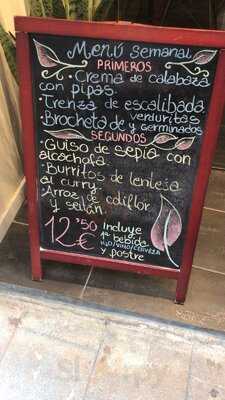 Menú semanal
PRIMEROS
• Crema de calabaza
con pipas.
• Trenza de escalibada
• Brocheta de verduritas
y germinados
SEGUNDOS
• Guiso de sepia con
alcachofa.
• Burritos de lenteja
al curry.
• Arroz de coliflor
y seitán.
12'50 €
Incluye
1ª bebida
H2O/VINO/CERVEZA
y postre